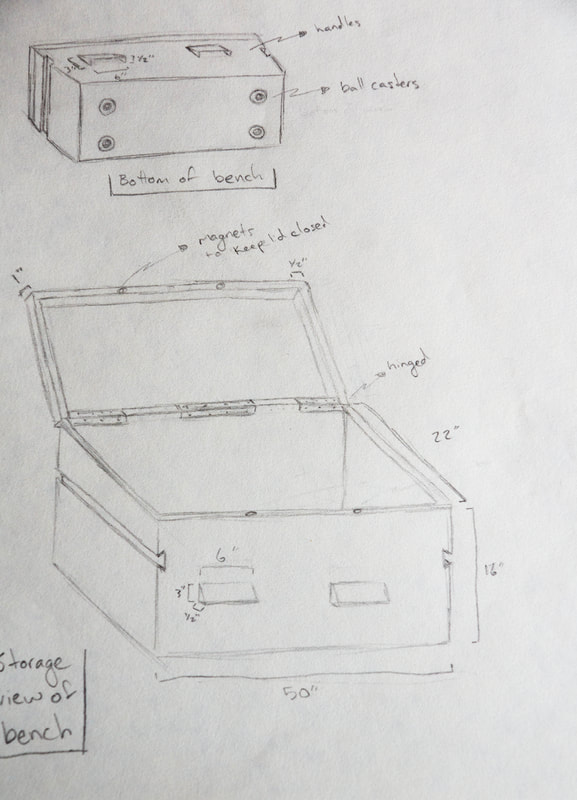 handles
1 1/2"
3"
6"
ball casters
Bottom of bench
magnets
to keep lid closed
1"
1/2"
hinged
22"
6"
3"
1/2"
16"
50"
Storage
view of
bench